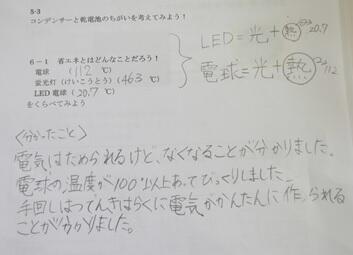 5-3
コンデンサーと乾電池のちがいを考えてみよう！
6－1 省エネとはどんなことだろう！
電球 （112 ℃）
蛍光灯（けいこうとう）（46.3 ℃）
LED電球（20.7 ℃）
をくらべてみよう
LED＝光＋熱 20.7
電球＝光＋熱 112
〈分かったこと〉
電気はためられるけど、なくなることが分かりました。
電球の温度が100°以上あってびっくりしました。
手回しはつでんきはらくに電気がかんたんに作られる
ことが分かりました。